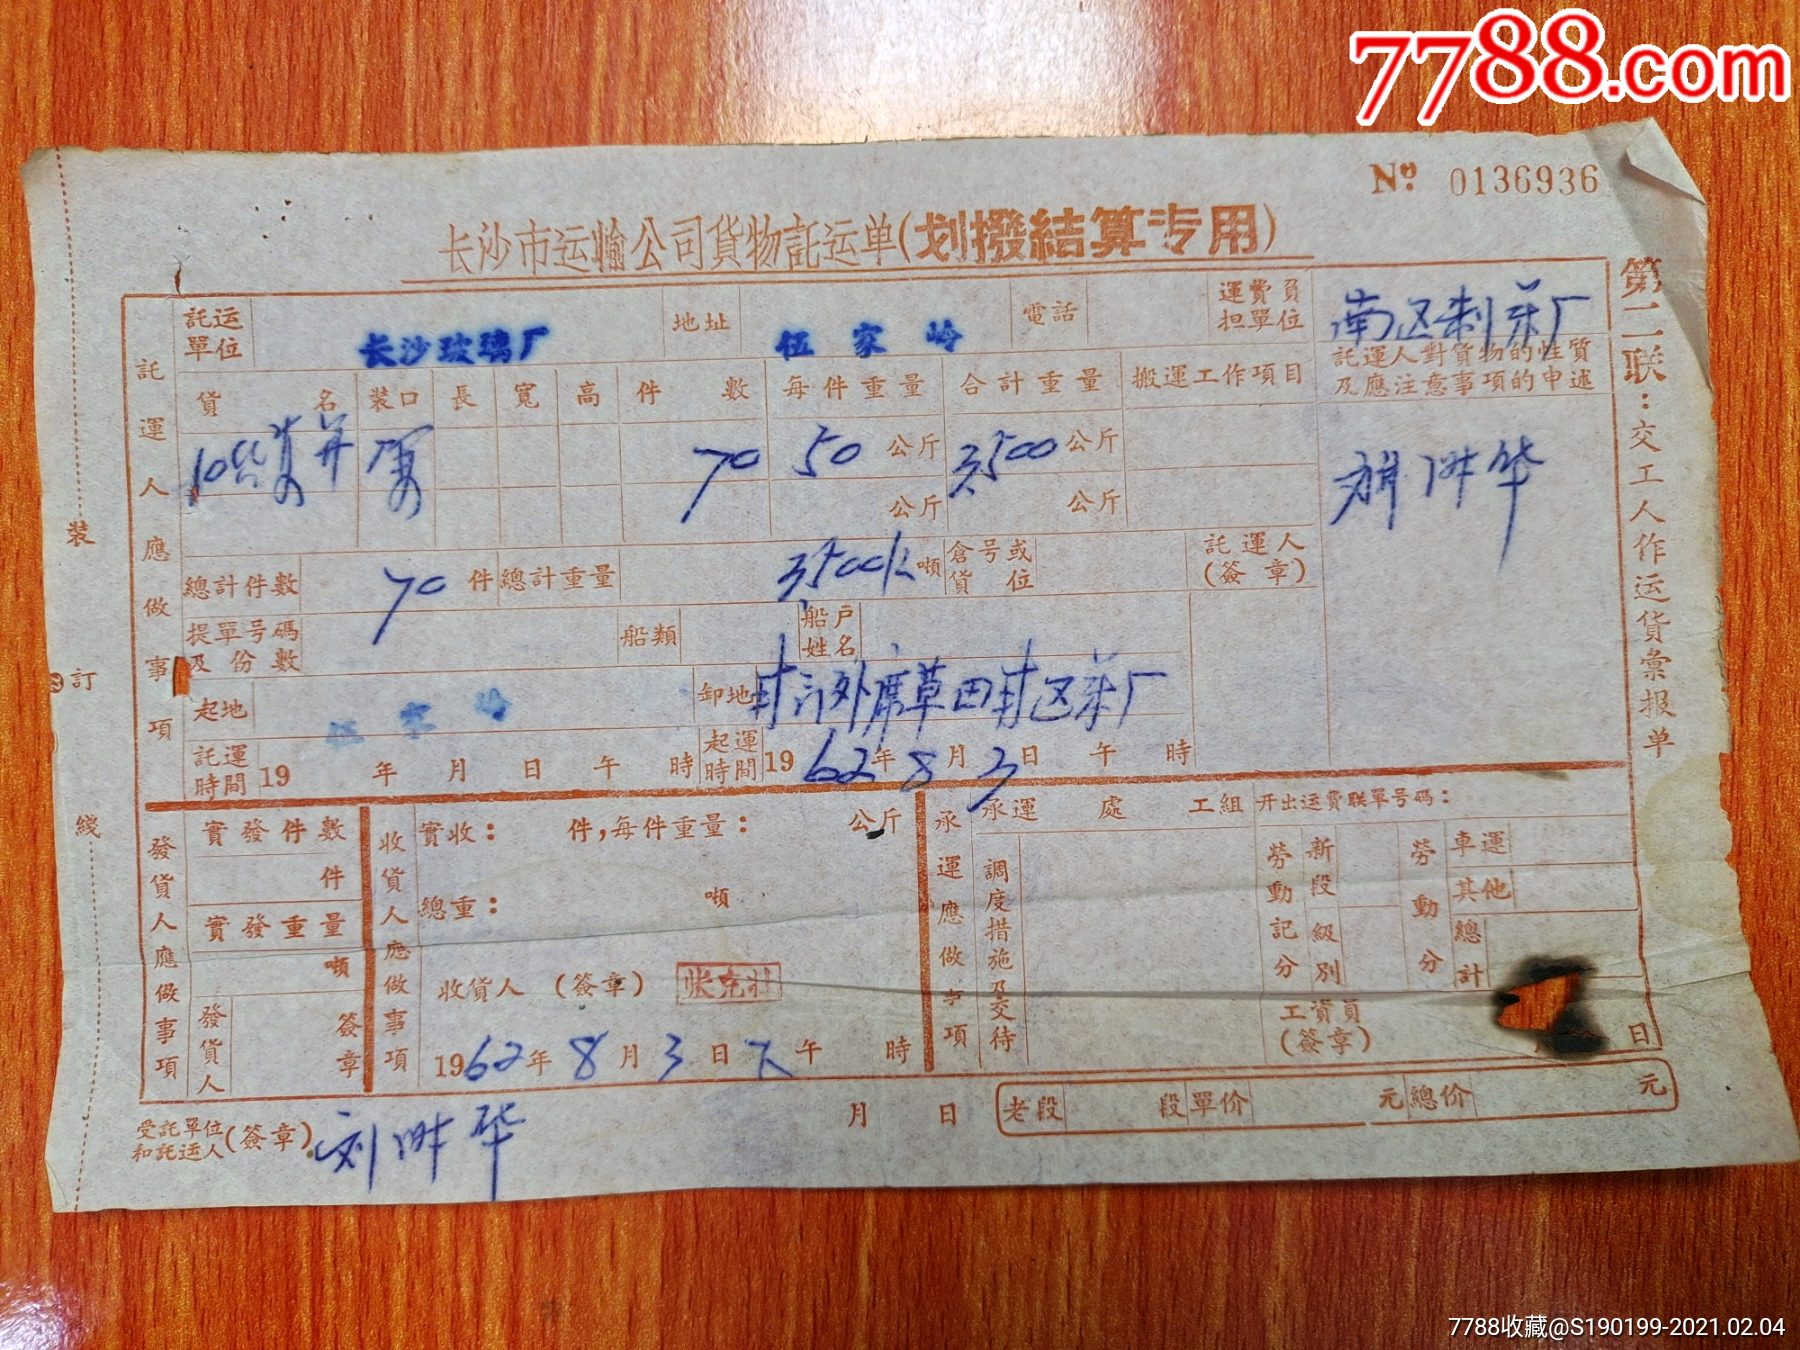 7788.com
№ 0136936
长沙市运输公司貨物託运单(划撥結算专用)
第二联：交工人作运货彙报单
装 訂 綫
託運人應做事項
託运單位 长沙玻璃厂 地址 伍家岭 電話 運費負担單位 南区制茶厂
貨名 裝口 長 寬 高 件數 每件重量 合計重量 搬運工作項目 託運人對貨物的性質及應注意事項的申述
70 50公斤 3500公斤
公斤 公斤
總計件數 70件 總計重量 3500k 噸 倉号或貨位 託運人(簽章)
提單号碼及份數 船類 船户姓名
起地 伍家岭 卸地
託運時間 19 年 月 日 午 時 起運時間 1962年8月3日 午 時
發貨人應做事項
實發件數
件
實發重量
噸
發貨人 簽章
收貨人應做事項
實收： 件，每件重量： 公斤
總重： 噸
收貨人 (簽章) 张克壯
1962年8月3日下午 時
承運應做事項
承運 處 工組 开出运費联單号码：
調度措施及交待
勞動記分 新段級別 勞動分 車運
其他
總計
工資員(簽章) 日
受託單位和託运人(簽章) 刘 华 月 日
老段 段單价 元 總价 元
7788收藏@S190199-2021.02.04